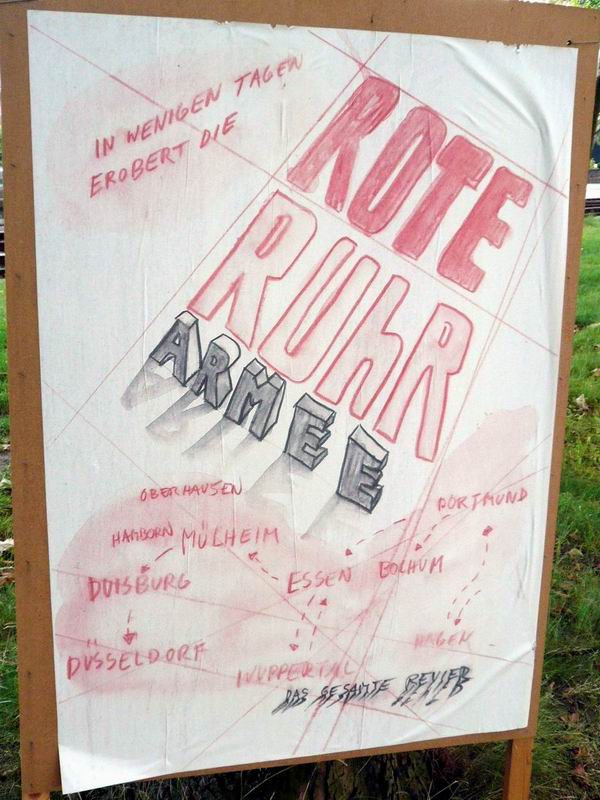 IN WENIGEN TAGEN
EROBERT DIE
ROTE
RUhR
ARMEE
OBERHAUSEN
DORTMUND
HAMBORN MÜLHEIM
DUISBURG
ESSEN BOCHUM
DÜSSELDORF
HAGEN
WUPPERTAL
DAS GESAMTE REVIER